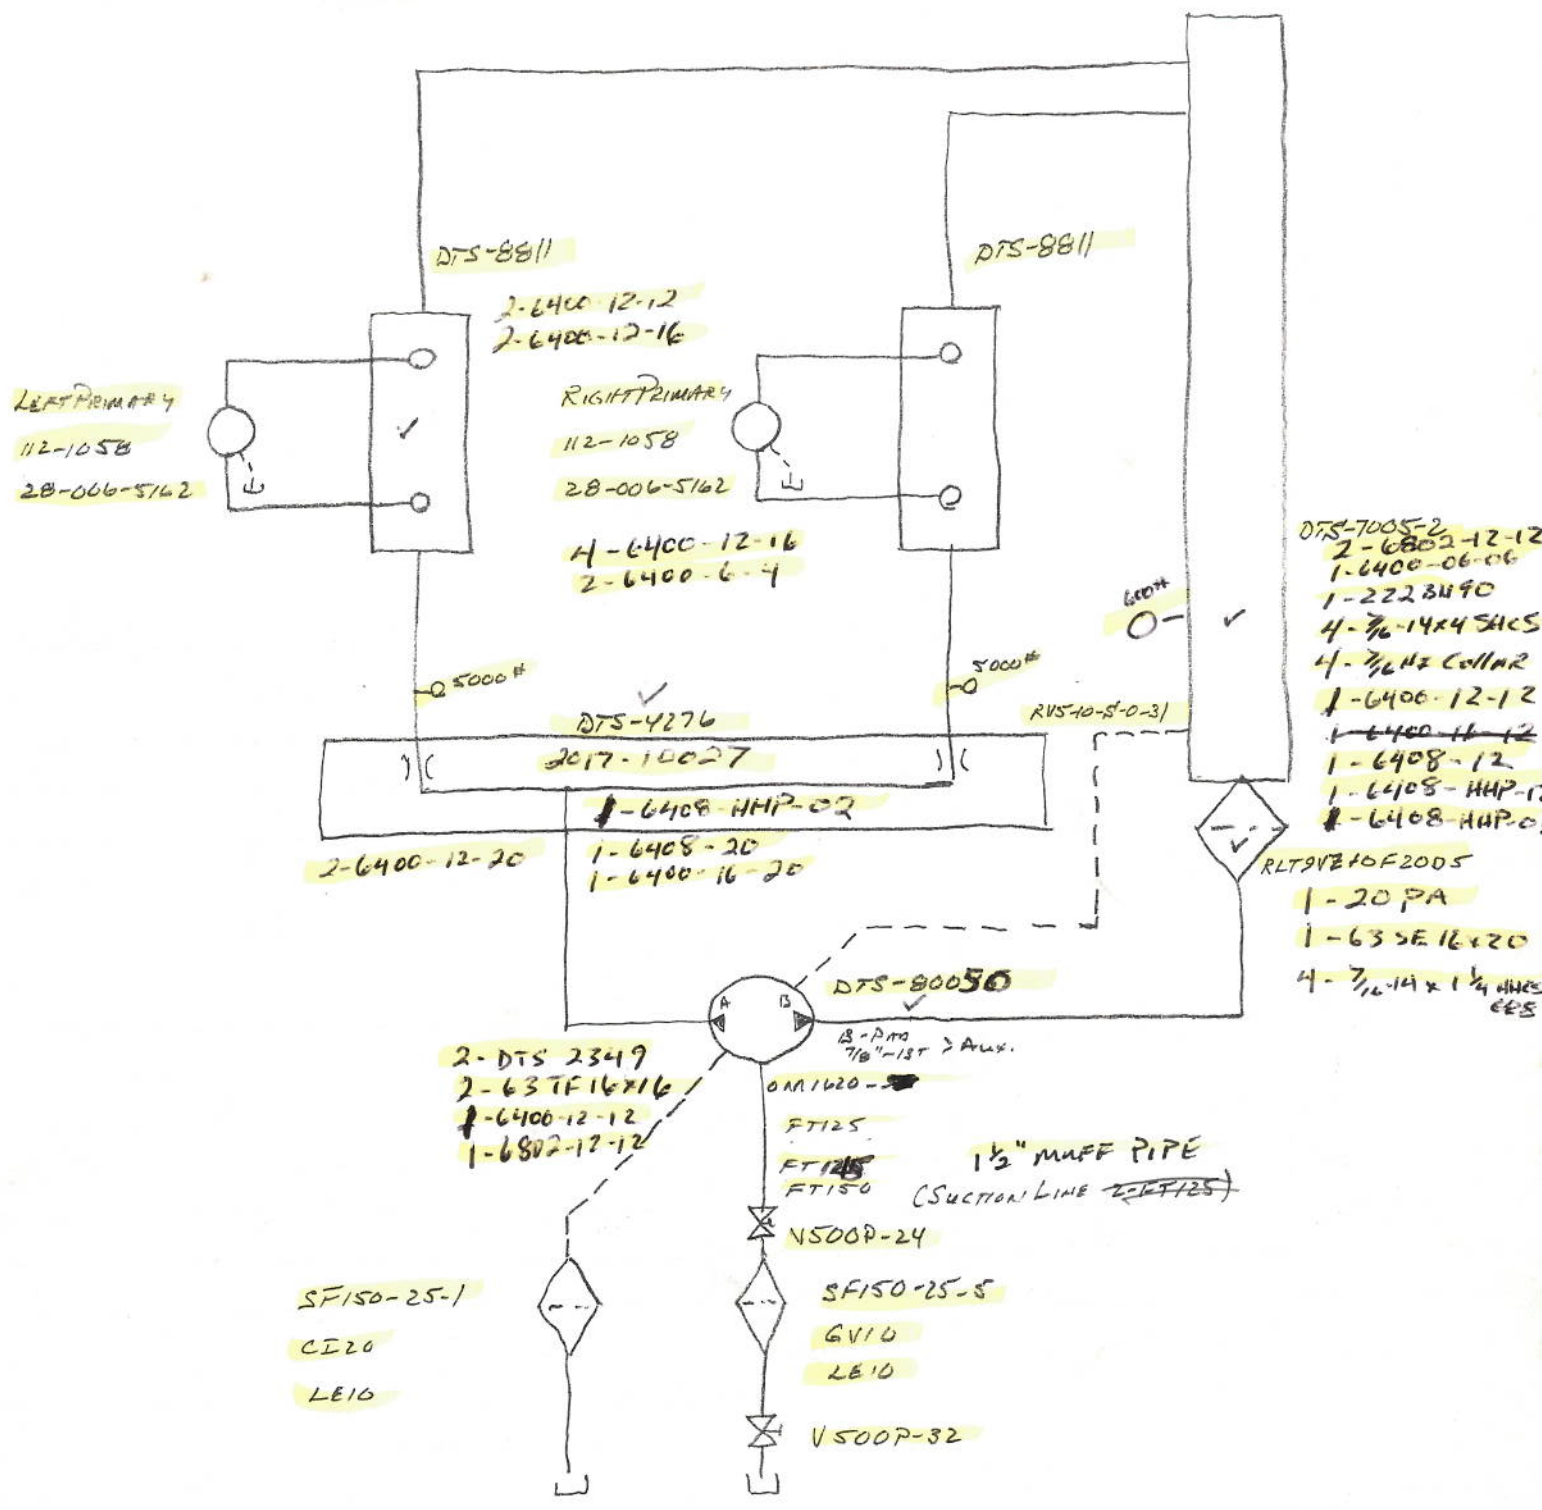 DTS-8811
2-6400-12-12
2-6400-12-16
DTS-8811
LEFT PRIMARY
112-1058
28-006-5162
RIGHT PRIMARY
112-1058
28-006-5162
4-6400-12-16
2-6400-6-4
5000#
5000#
600#
DTS-7005-2
2-6802-12-12
1-6400-06-06
1-222BH90
4-7/16-14x4 SHCS
4-7/16 HI COLLAR
1-6400-12-12
1-6400-16-12
1-6408-12
1-6408-HHP-12
1-6408-HHP-0
DTS-4276
2017-10027
1-6408-HHP-02
2-6400-12-20
1-6408-20
1-6400-16-20
RV5-10-S-0-31
RLT9VZ10F20D5
1-20 PA
1-63SE16x20
4-7/16-14 x 1 1/4 HHCS
A
B
DTS-80050
B-PAD
7/8"-13T > AUX.
2-DTS 2349
2-63TF16x16
1-6400-12-12
1-6802-12-12
OM1620-
FT125
FT150
1 1/2" MUFF PIPE
(SUCTION LINE 2-FT125)
V500P-24
SF150-25-1
CI20
LE10
SF150-25-5
GV10
LE10
V500P-32